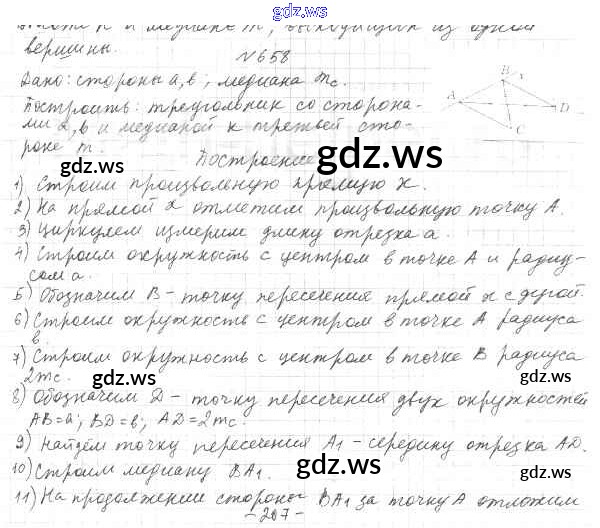 gdz.ru
высоте h и медиане m, выходящих из одной
вершины.
№658
Дано: стороны a, b, медиана mc.
Построить: треугольник со сторона-
ми a, b и медианой к третьей сто-
роне m.
A
B
x
D
C
Построение
gdz.ru
gdz.ru
1) Строим произвольную прямую x.
2) На прямой x отметим произвольную точку A.
3) Циркулем измерим длину отрезка a.
4) Строим окружность с центром в точке A и радиу-
сом a.
gdz.ru
gdz.ru
5) Обозначим B – точку пересечения прямой x с дугой.
6) Строим окружность с центром в точке A радиуса
b.
7) Строим окружность с центром в точке B радиуса
2mc.
gdz.ru
gdz.ru
8) Обозначим D – точку пересечения двух окружностей
AB=a; BD=b; AD=2mc.
9) Найдём точку пересечения A1 – середину отрезка AD.
10) Строим медиану BA1.
gdz.ru
gdz.ru
11) На продолжении стороны BA1 за точку A отложим
-207-
gdz.ru